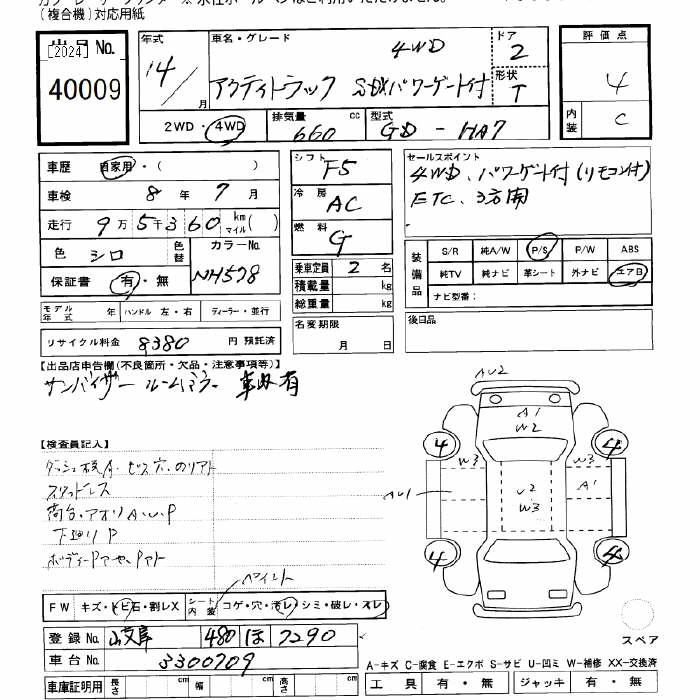 (複合機)対応用紙
出品 No.
[2024]
40009
年式
14/
月
車名・グレード
4WD
アクティトラック SDXパワーゲート付
ドア
2
形状
T
2WD・4WD
排気量
660
cc
型式
GD - HA7
評価点
4
内装
C
車歴
自家用・( )
車検
8 年 7 月
走行
9万5千360 km マイル( )
色
シロ
色替
カラーNo.
NH578
保証書
有・無
モデル年式 年
ハンドル 左・右
ディーラー・並行
リサイクル料金
8380
円 預託済
シフト
F5
冷房
AC
燃料
G
乗車定員 2 名
積載量 kg
総重量 kg
名変期限
月 日
セールスポイント
4WD、パワーゲート付(リモコン付)
ETC、3方開
装備品
S/R 純A/W P/S P/W ABS
純TV 純ナビ 革シート 外ナビ エアB
ナビ型番:
後日品
【出品店申告欄(不良箇所・欠品・注意事項等)】
サンバイザー ルームミラー 車内有
【検査員記入】
スタッドレス
荷台・アオリA・U・P
下廻りP
FW
キズ・トビ石・割レX
シート内装
コゲ・穴・汚レ・シミ・破レ・スレ
ペイント
登録No.
480 ほ 7290
車台No.
3300709
車庫証明用
長さ cm
幅 cm
高さ cm
AU2
A1
W2
4
4
W3
W3
AU1
U2
W3
A1
4
4
スペア
A-キズ C-腐食 E-エクボ S-サビ U-凹ミ W-補修 XX-交換済
工具 有・無
ジャッキ 有・無